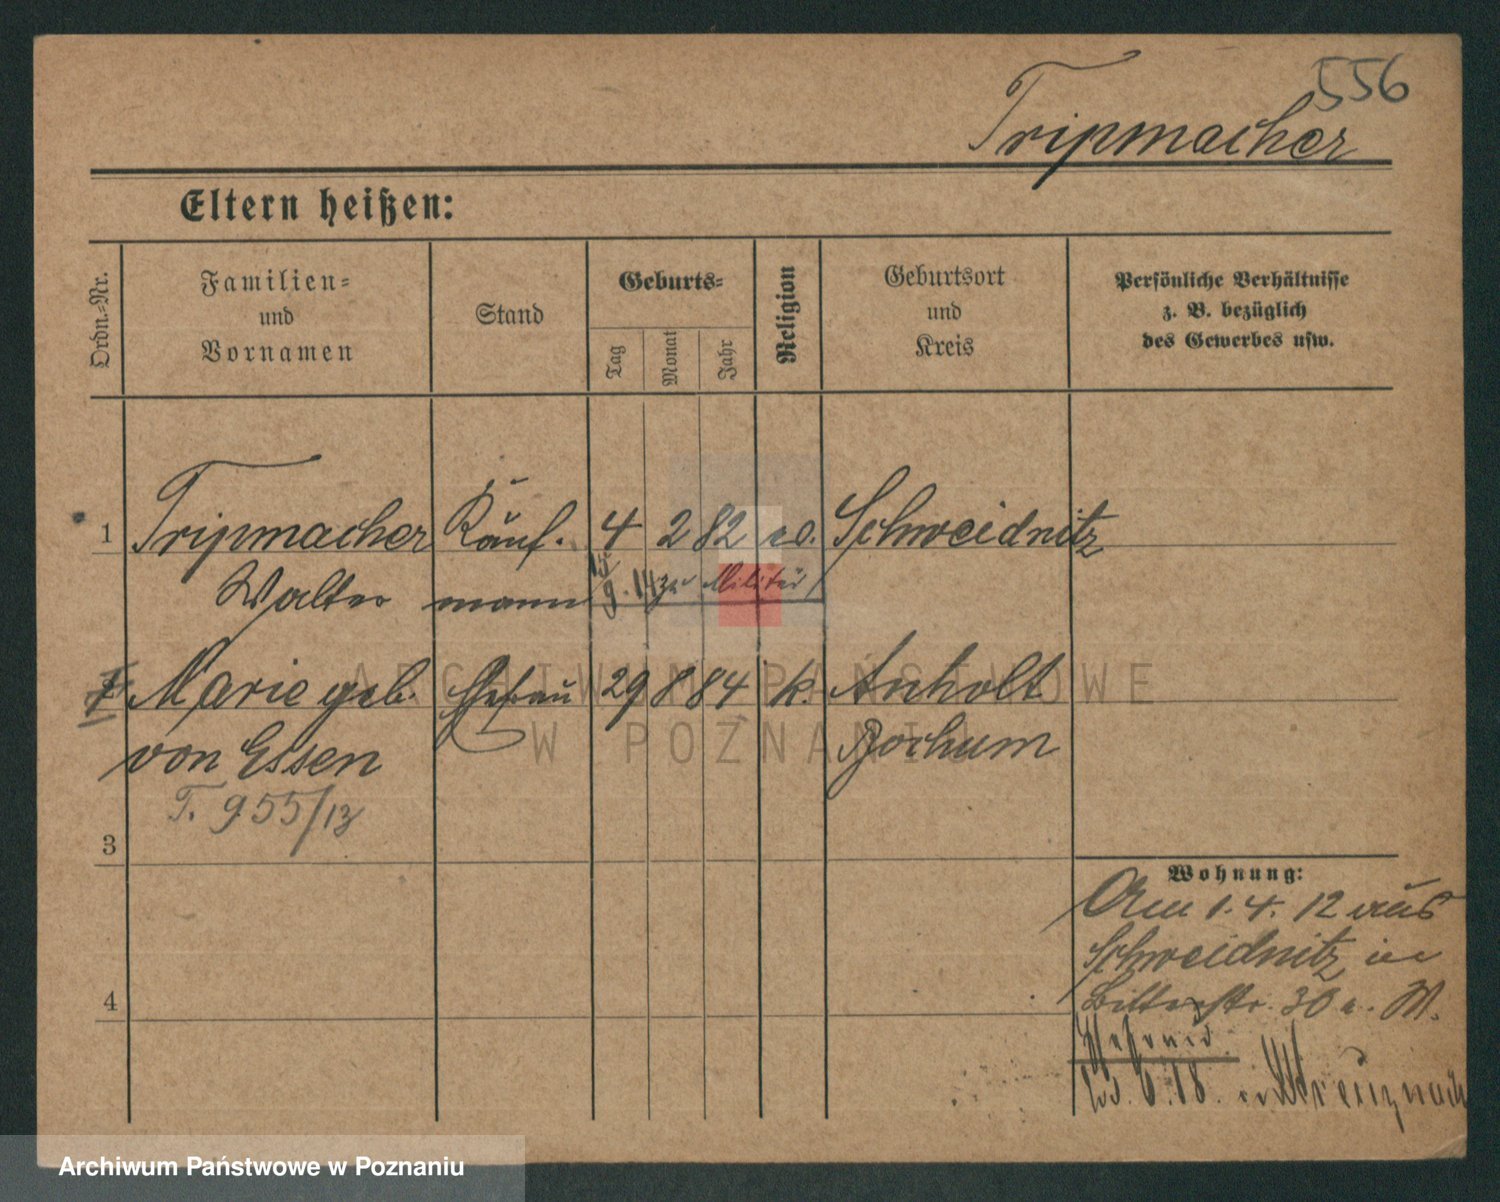 556
Tripmacher
Eltern heißen:
Ordn.-Nr.
Familien-
und
Vornamen
Stand
Geburts-
Tag
Monat
Jahr
Religion
Geburtsort
und
Kreis
Persönliche Verhältnisse
z. B. bezüglich
des Gewerbes usw.
1 Tripmacher Kauf- 4 2 82 ev. Schweidnitz
Walter mann 9. 14 zu Militär
Marie geb. Ehefrau 29 8 84 k. Anholt
von Essen Bochum
T. 955/13
3
Wohnung:
Am 1. 4. 12 aus
Schweidnitz in
30
4
6. 18. Kreuznach
ARCHIWUM PAŃSTWOWE
W POZNANIU
Archiwum Państwowe w Poznaniu